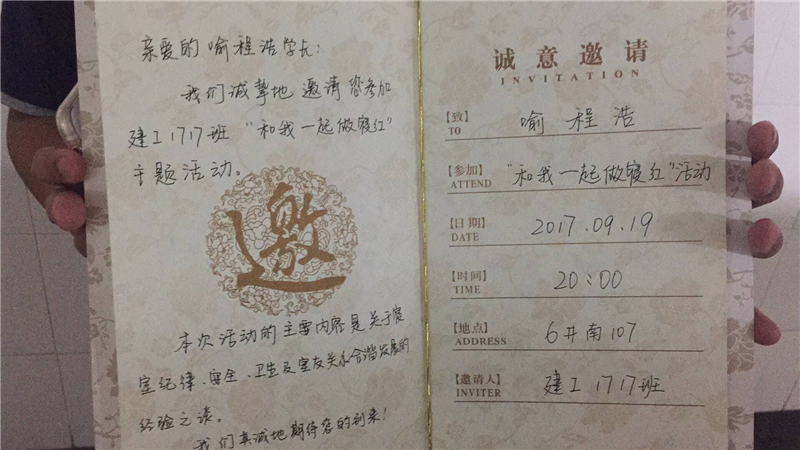 亲爱的喻程浩学长:
我们诚挚地邀请您参加
建工1717班“和我一起做寝红”
主题活动。
邀
本次活动的主要内容是关于寝
室纪律、安全、卫生及室友关系合谐发展的
经验之谈。
我们真诚地期待您的到来!
诚意邀请
INVITATION
【致】 喻程浩
TO
【参加】 “和我一起做寝红”活动
ATTEND
【日期】 2017.09.19
DATE
【时间】 20:00
TIME
【地点】 6#南107
ADDRESS
【邀请人】 建工1717班
INVITER